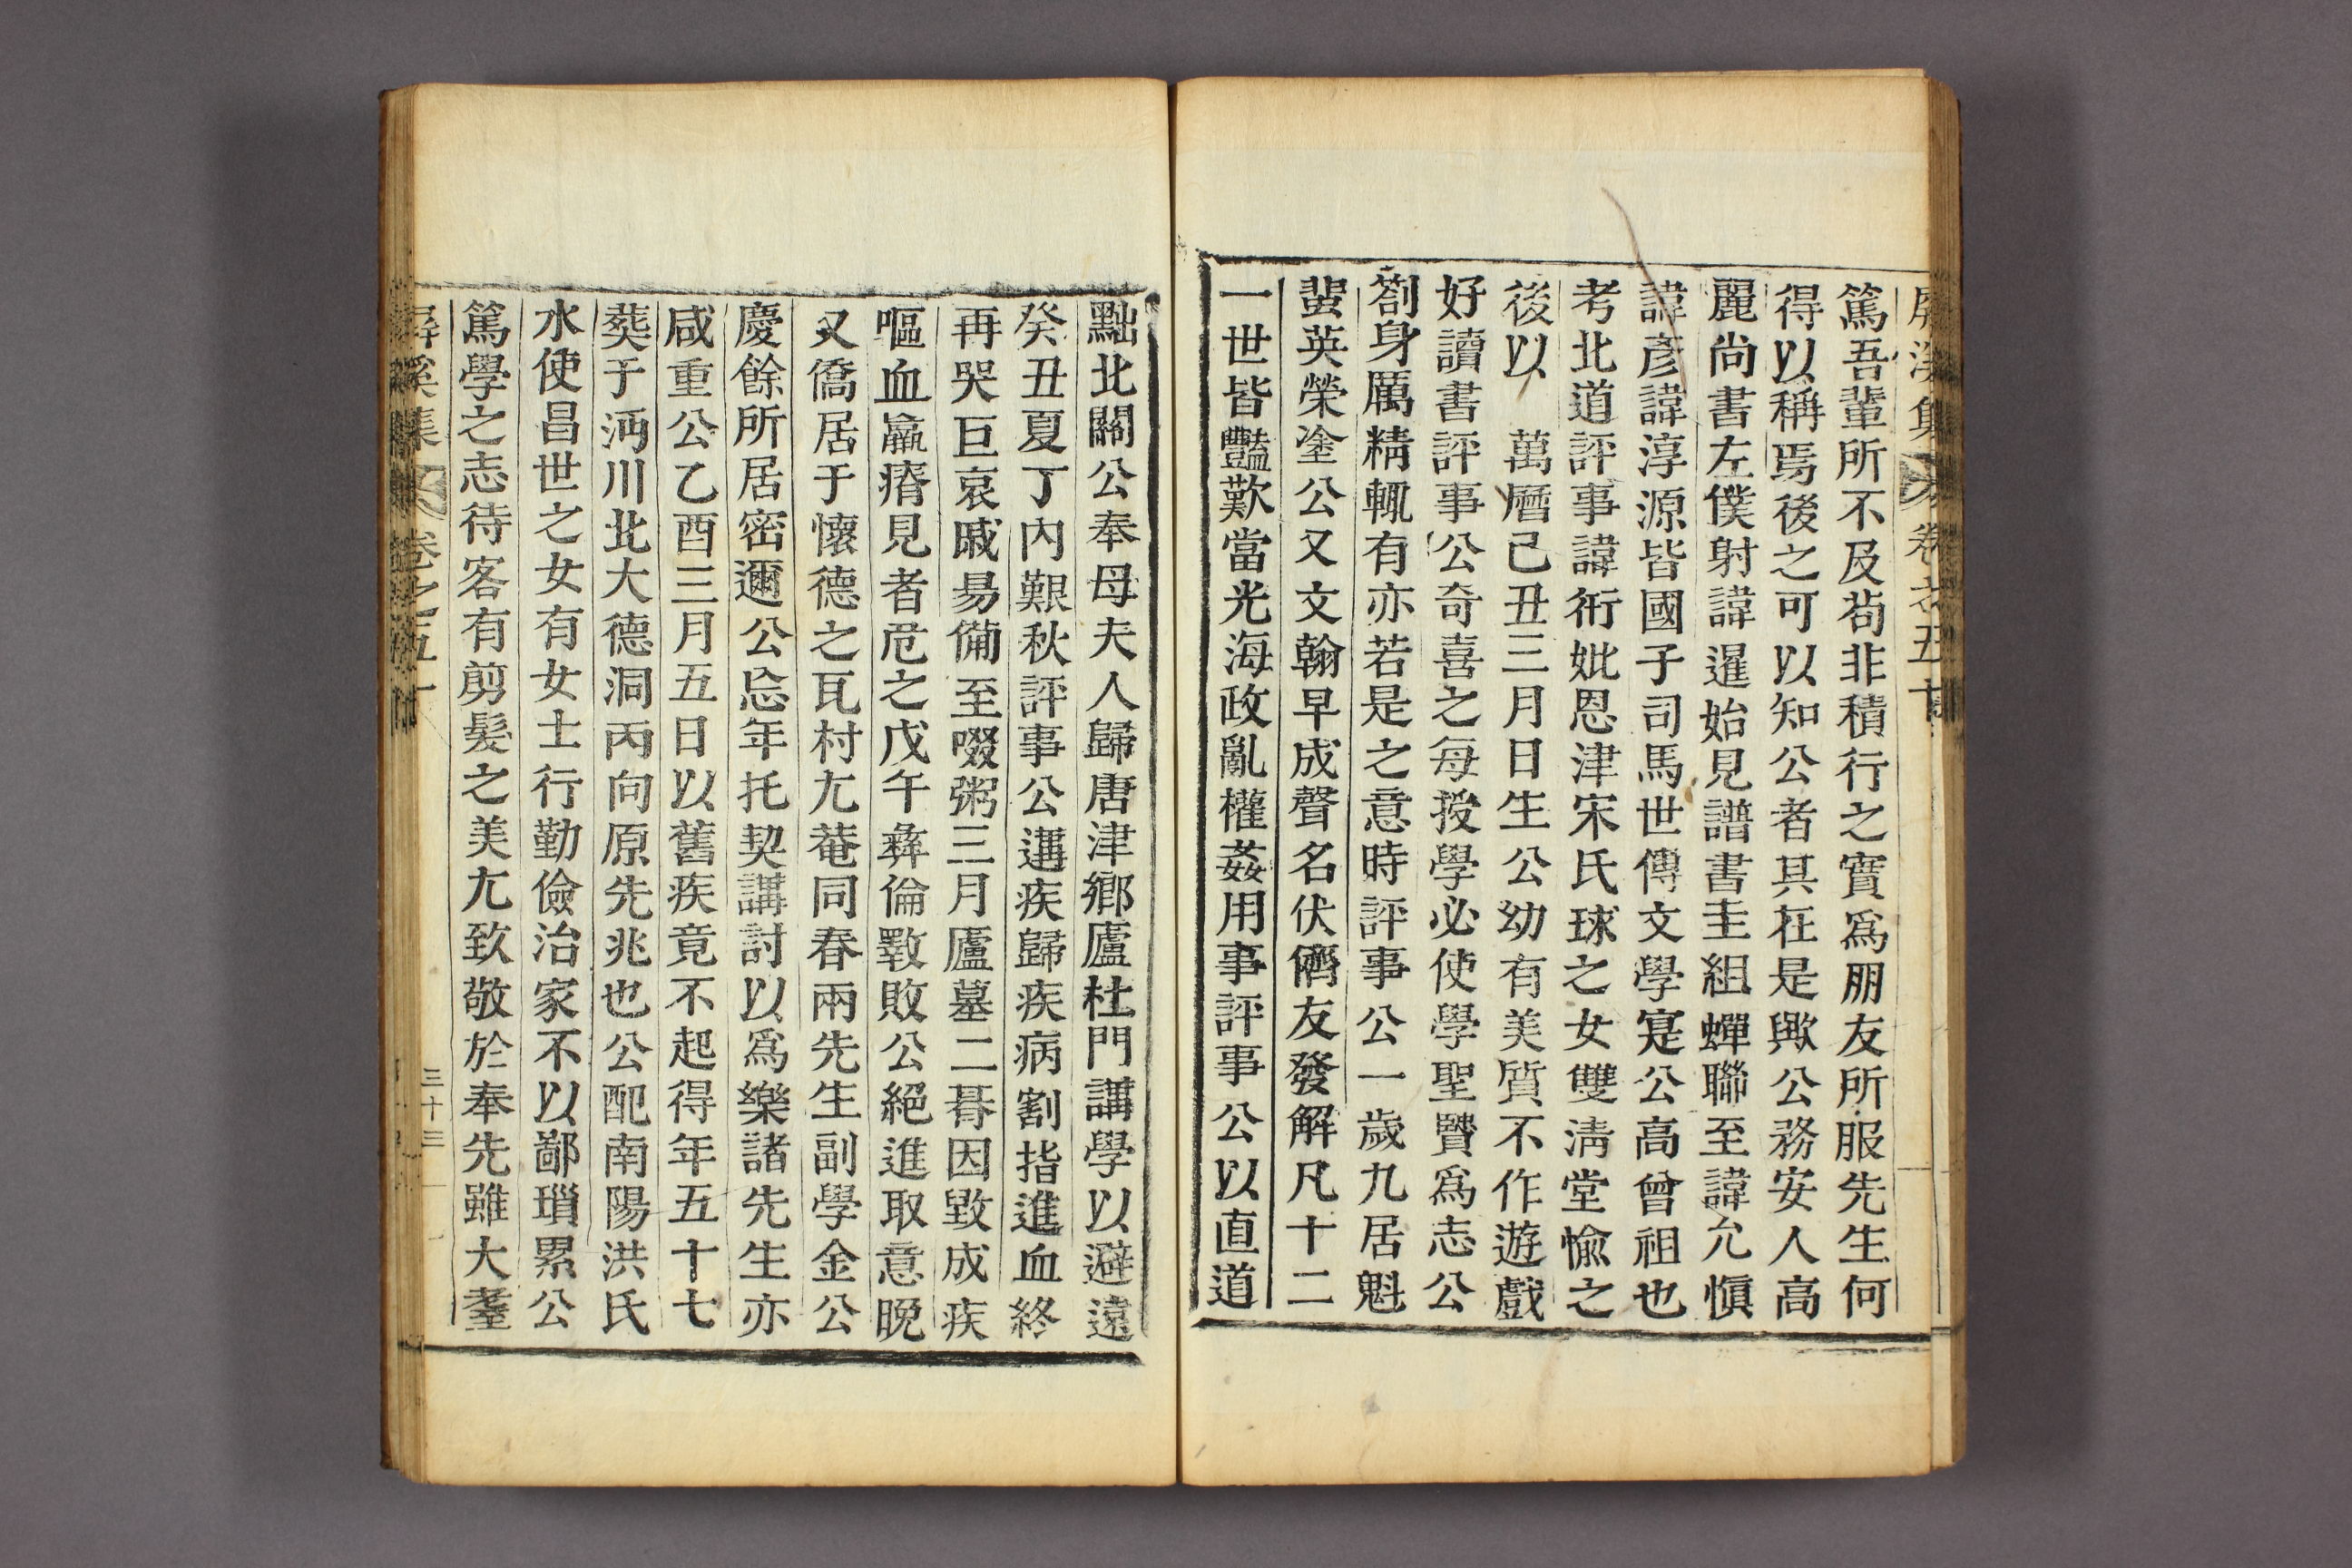 屛溪集 卷之五十
篤吾輩所不及苟非積行之實爲朋友所服先生何
得以稱焉後之可以知公者其在是歟公務安人高
麗尙書左僕射諱暹始見譜書圭組蟬聯至諱允愼
諱彥諱淳源皆國子司馬世傳文學寔公高曾祖也
考北道評事諱衎妣恩津宋氏球之女雙淸堂愉之
後以 萬曆己丑三月日生公幼有美質不作遊戲
好讀書評事公奇喜之每授學必使學聖贒爲志公
劄身厲精輒有亦若是之意時評事公一歲九居魁
蜚英榮塗公又文翰早成聲名伏儕友發解凡十二
一世皆豔歎當光海政亂權姦用事評事公以直道
黜北關公奉母夫人歸唐津鄕廬杜門講學以避遠
癸丑夏丁內艱秋評事公遘疾歸疾病割指進血終
再哭巨哀戚易備至啜粥三月廬墓二朞因毀成疾
嘔血羸瘠見者危之戊午彝倫斁敗公絕進取意晩
又僑居于懷德之瓦村尤菴同春兩先生副學金公
慶餘所居密邇公忘年托契講討以爲樂諸先生亦
咸重公乙酉三月五日以舊疾竟不起得年五十七
葬于沔川北大德洞丙向原先兆也公配南陽洪氏
水使昌世之女有女士行勤儉治家不以鄙瑣累公
篤學之志待客有剪髮之美尤致敬於奉先雖大耋
屛溪集 卷之五十 三十三